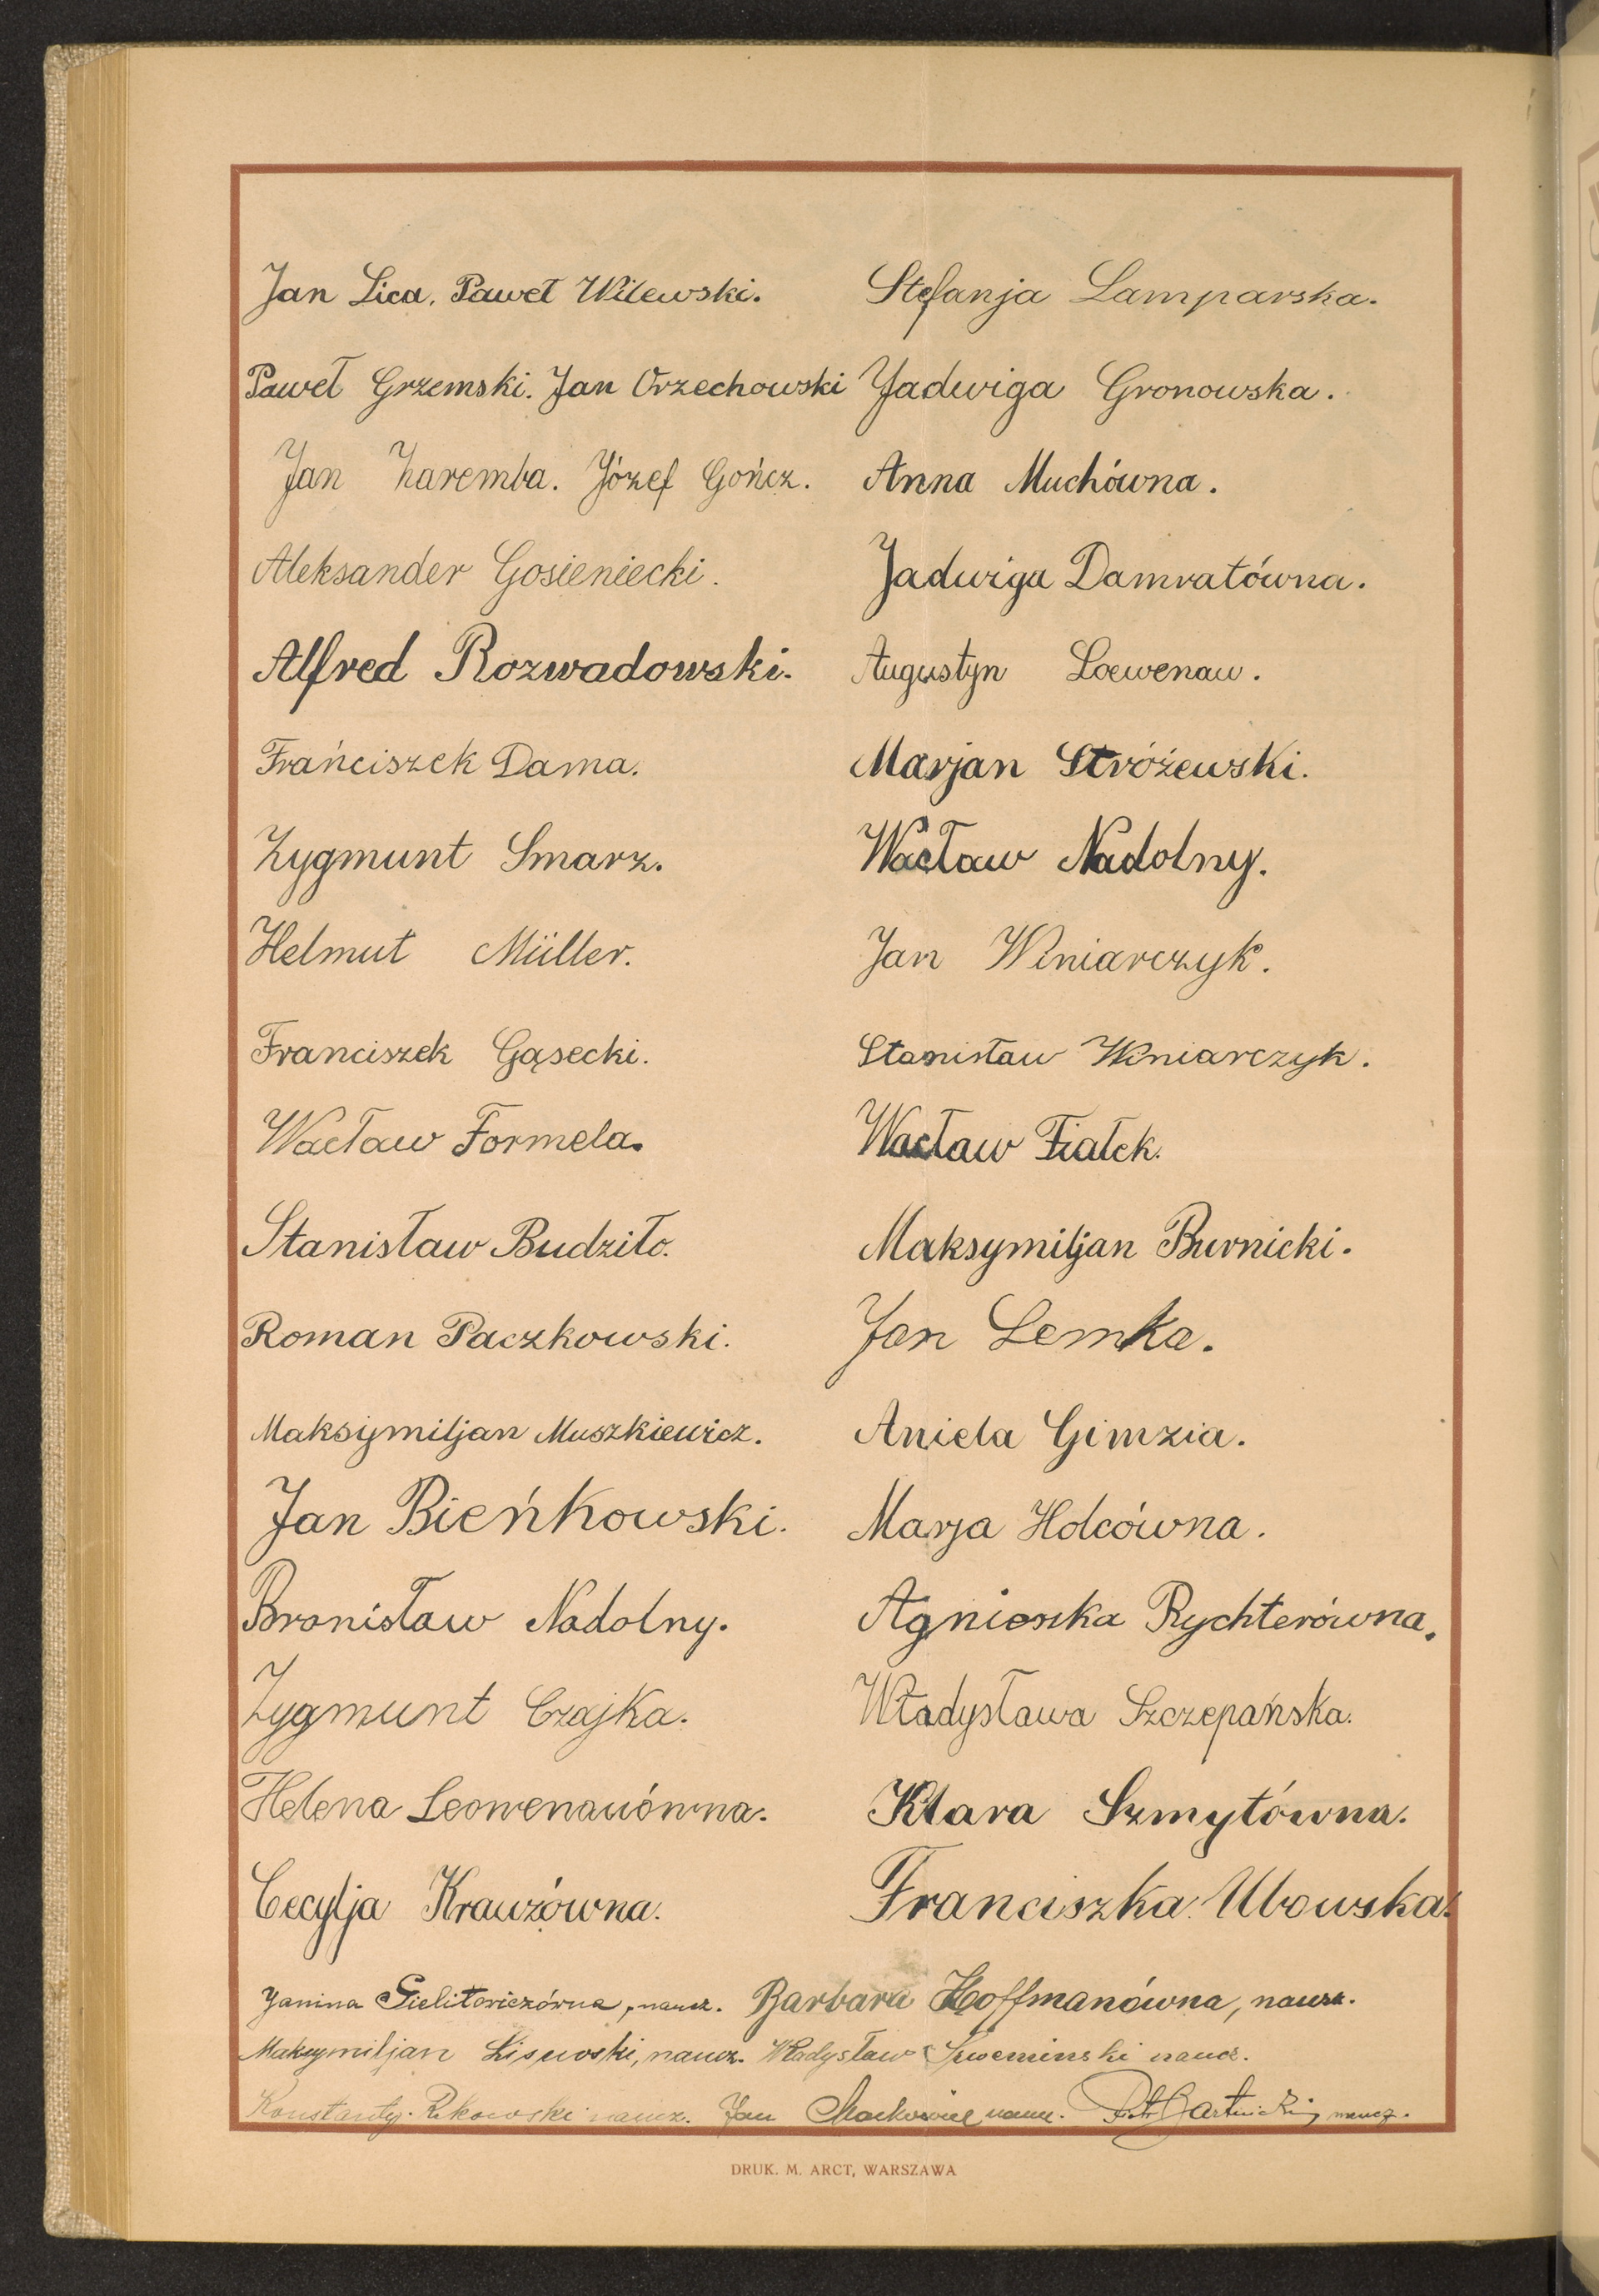 Jan Lica. Paweł Wilewski. Stefanja Lamparska.
Paweł Grzemski. Jan Orzechowski Jadwiga Gronowska.
Jan Zaremba. Józef Gończ. Anna Muchówna.
Aleksander Gosieniecki. Jadwiga Damratówna.
Alfred Rozwadowski. Augustyn Loewenau.
Frańciszek Dama. Marjan Stróżewski.
Zygmunt Smarz. Wacław Nadolny.
Helmut Müller. Jan Winiarczyk.
Franciszek Gąsecki. Stanisław Winiarczyk.
Wacław Formela. Wacław Fiałek.
Stanisław Budziło. Maksymiljan Burnicki.
Roman Paczkowski. Jan Lemka.
Maksymiljan Muszkiewicz. Aniela Gimzia.
Jan Bieńkowski. Marja Holcówna.
Bronisław Nadolny. Agnieszka Rychterówna.
Zygmunt Czajka. Władysława Szczepańska.
Helena Leowenauówna. Klara Szmytówna.
Cecylja Krauzówna. Franciszka Ubowska.
Janina Gielitowiczówna, naucz. Barbara Hoffmanówna, naucz.
Maksymiljan Lisewski, naucz. Władysław naucz.
Konstanty naucz. Jan naucz. Piotr naucz.
DRUK. M. ARCT, WARSZAWA